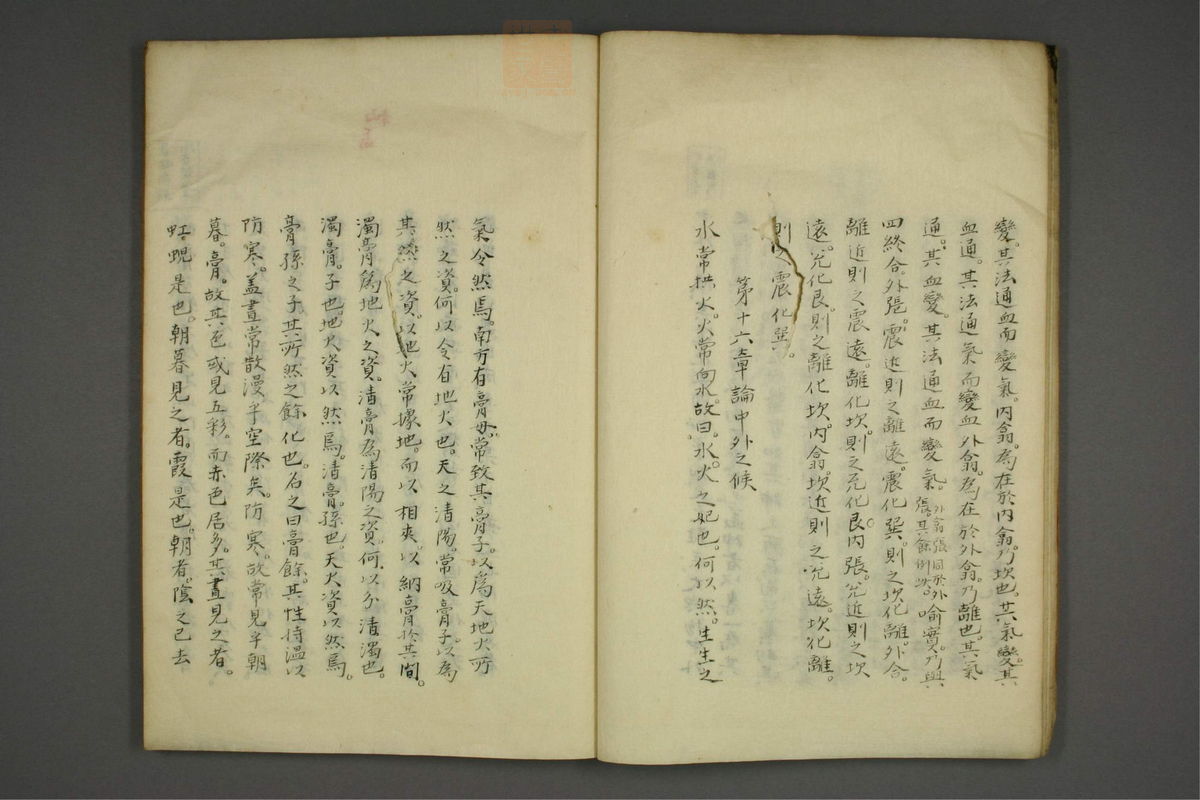 變。其法通血而變氣。内翕。爲在於内翕。乃坎也。其氣變。其
血通。其法通氣而變血外翕。爲在於外翕。乃離也。其氣
通。其血變。其法通血而變氣。外翕張同於外張。其餘例此。喻實。乃與
四終合。外張。震近則之離遠。震化巽。則之坎化離。外合。
離近則之震遠。離化坎。則之兌化艮。内張。兌近則之坎
遠。兌化艮。則之離化坎。内翕。坎近則之兌遠。坎化離。
則之震化巽。
第十六章論中外之候
水常拱火。火常向水。故曰。水火之妃也。何以然。生生之
氣令然焉。南方有膏母。常致其膏子。以爲天地火所
然之資。何以令有地火也。天之清陽。常吸膏子。以爲
其然之資。以地火常據地。而以相夾。以納膏於其間。
濁膏爲地火之資。清膏爲清陽之資。何以分清濁也。
濁膏。子也。地火資以然焉。清膏。孫也。天火資以然焉。
膏孫之子。其所然之餘化也。名之曰膏餘。其性持温以
防寒。盖晝常散漫乎空際矣。防寒。故常見乎朝
暮。膏。故其色或見五彩。而赤色居多。其晝見之者。
虹蜺是也。朝暮見之者。霞是也。朝者。陰之已去